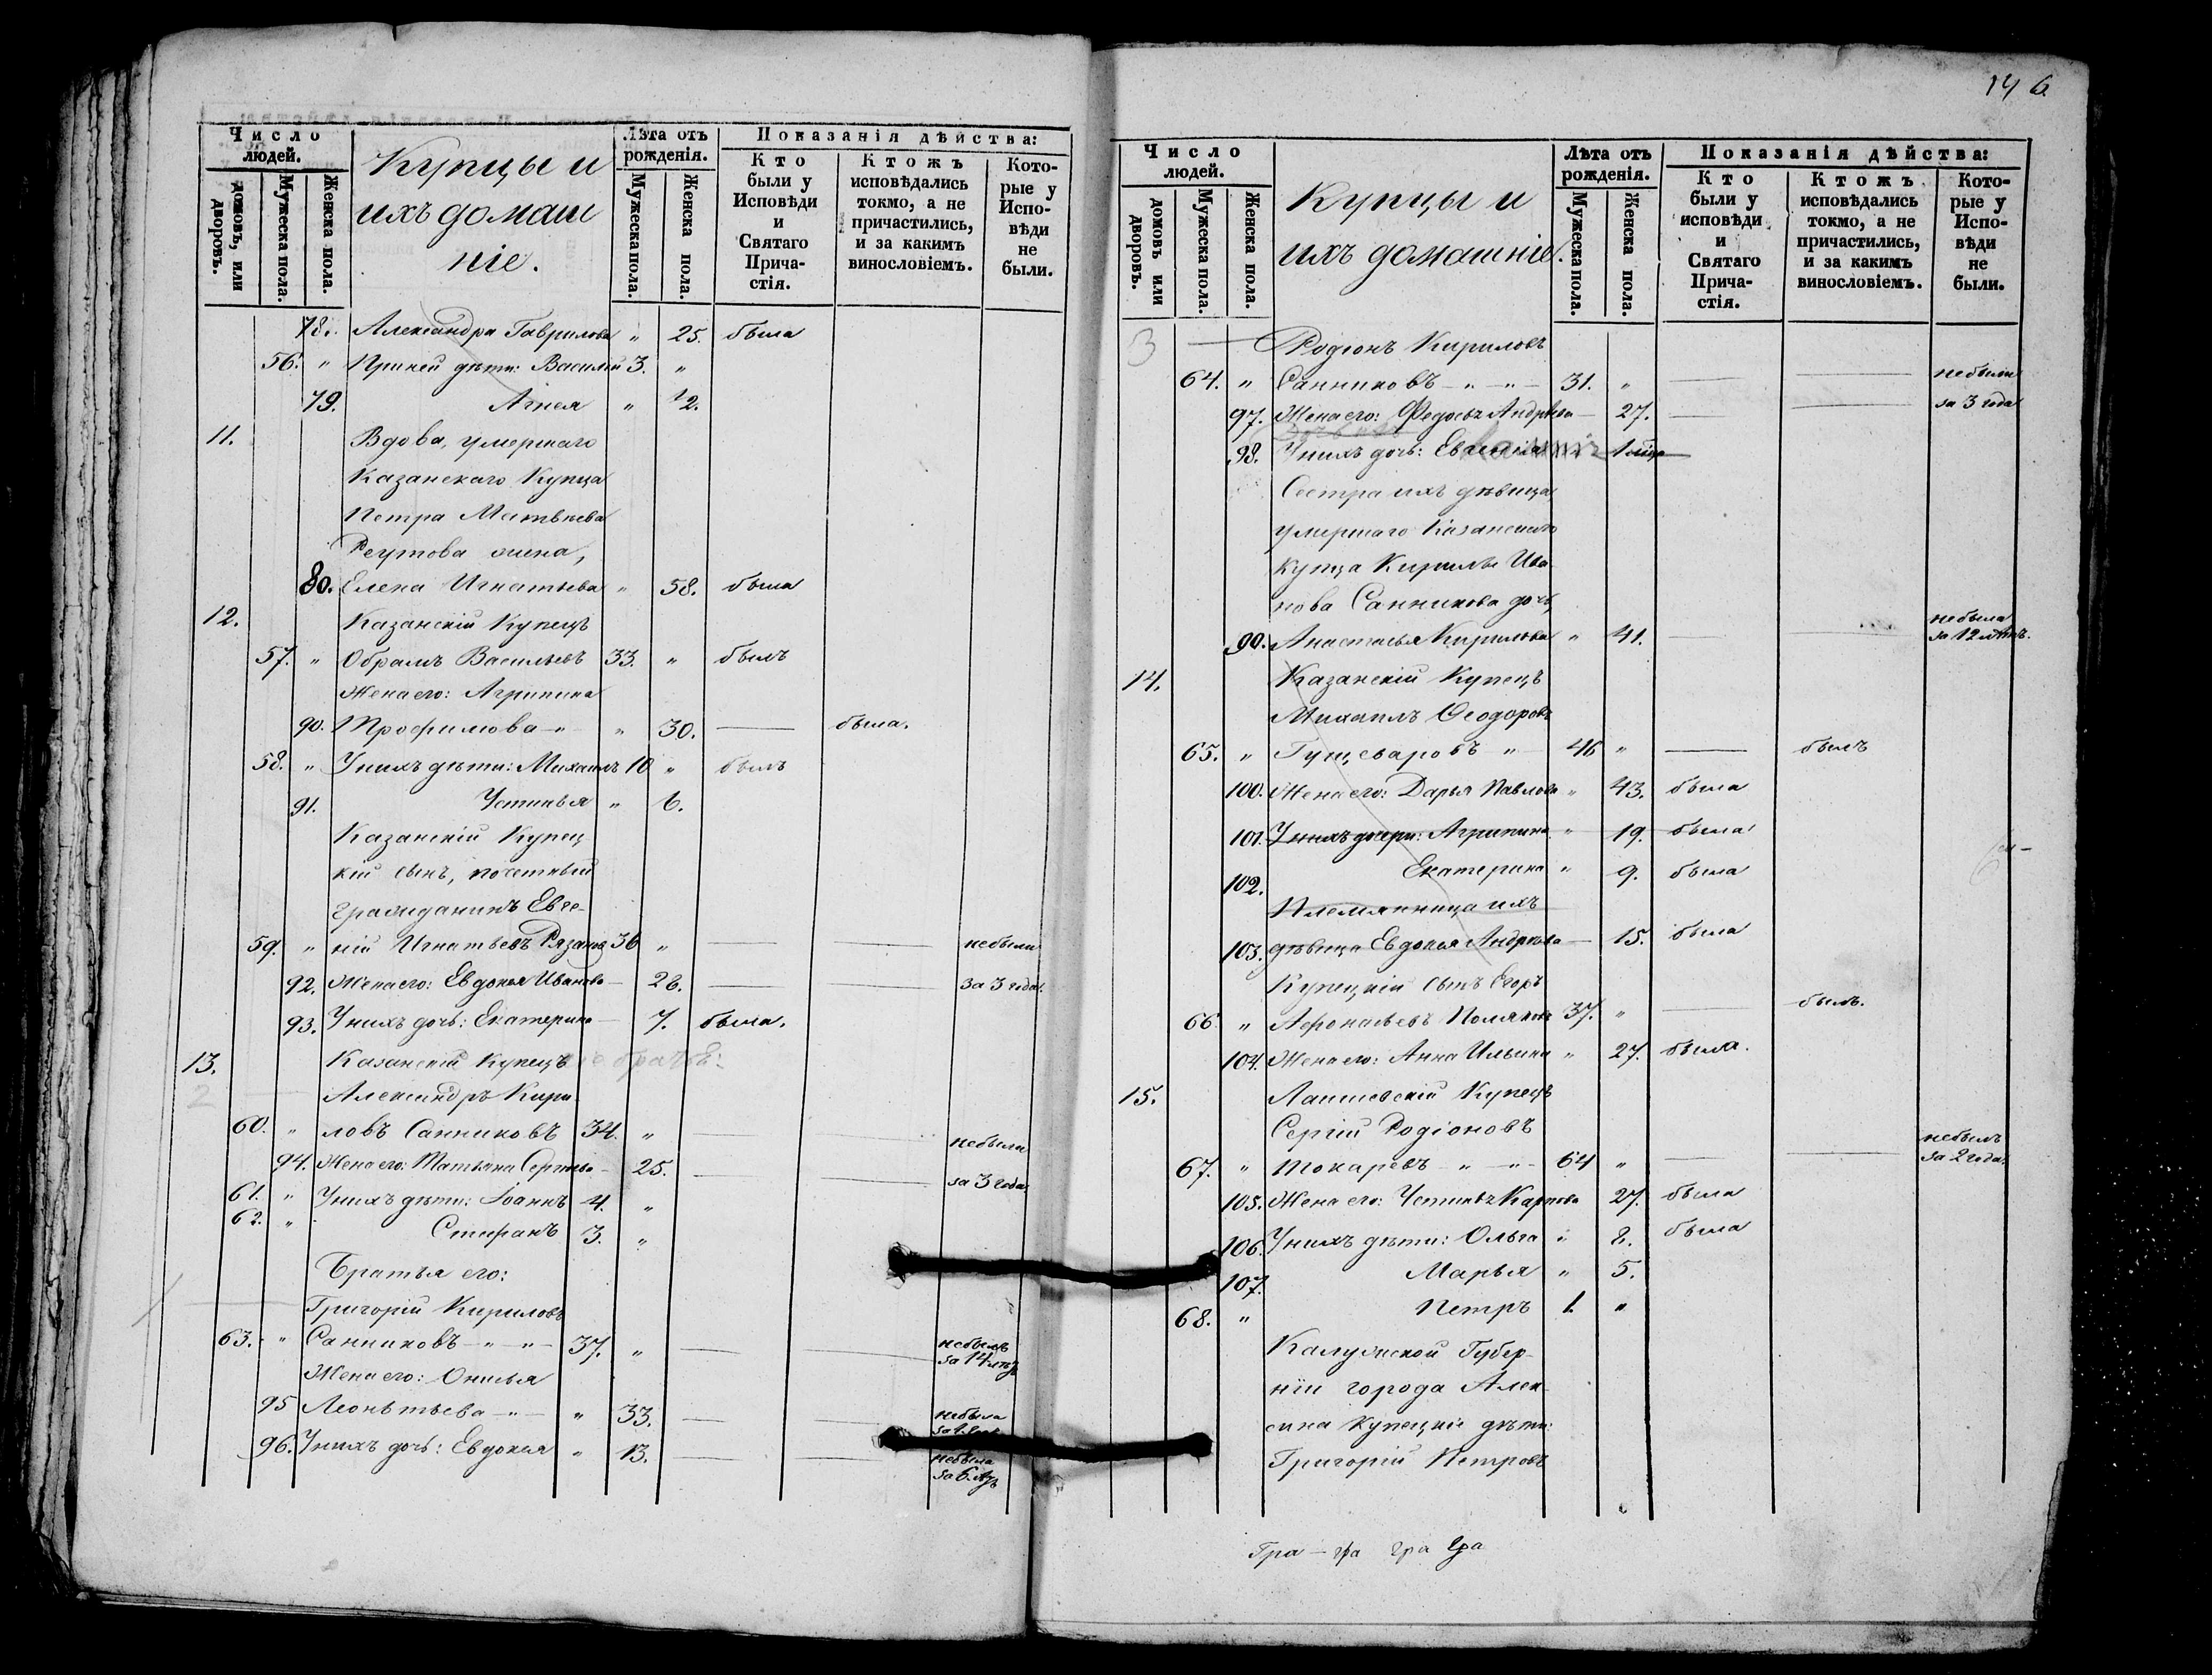 Число людей.
домовъ, или дворовъ.
Мужеска пола.
Женска пола.
Купцы и
ихъ домаш
ніе.
Лѣта отъ рожденія.
Мужеска пола.
Женска пола.
Показанія дѣйства:
Кто были у Исповѣди и Святаго Прича-стія.
Ктожъ исповѣдались токмо, а не причастились, и за какимъ винословіемъ.
Кото-рые у Испо-вѣди не были.
78. Александра Гаврилова " 25. была
56. " При ней дѣти: Василій 3. "
79. Агнея " 1/2.
11. Вдова, умершаго
Казанскаго Купца
Петра Матвѣева
Реутова жена,
80. Елена Игнатьева " 58. была
12. Казанскій Купецъ
57. " Обрамъ Васильевъ 33. " былъ
Жена его: Агрипина
90. Трофимова " " 30. — была.
58. " У нихъ дѣти: Михаилъ 10 " былъ
91. Устинья " 6.
Казанскій Купец
кій сынъ, почетный
гражданинъ Евге-
59. " ній Игнатьевъ Рязановъ 36 " — — небыли
92. Жена его: Евдокья Иванова — 26. — — за 3 года.
93. У нихъ дочь: Екатерина — 7. была.
13. Казанскій Купецъ
2 Александръ Кири
60. " ловъ Санниковъ 34. " — — небыли
94. Жена его: Татьяна Сергѣева — 25. — — за 3 года.
61. " У нихъ дѣти: Іоаннъ 4. "
62. " Стефанъ 3. "
Братья его:
1 Григорій Кириловъ
63. " Санниковъ — " — " — 37. " — — небылъ за 14 лѣтъ
Жена его: Онисья
95 Леонътьева — " — " 33. — — небыла
96. У нихъ дочь: Евдокья " 13. — — небыла за 6 лѣтъ
146
Число людей.
домовъ или дворовъ.
Мужеска пола.
Женска пола.
Купцы и
ихъ домашніе.
Лѣта отъ рожденія.
Мужеска пола.
Женска пола.
Показанія дѣйства:
Кто были у исповѣди и Святаго Прича-стія.
Ктожъ исповѣдались токмо, а не причастились, и за какимъ винословіемъ.
Кото-рые у Испо-вѣди не были.
3 — Родіонъ Кириловъ
64. " Санниковъ — " — " — 31. " — — небыли
97. Жена его: Федосья Андрѣева — 27. — — за 3 года
98. У нихъ дочь:
Сестра ихъ дѣвица
умершаго Казанскаго
купца Кирилы Ива
нова Санникова дочь
99. Анастасья Кирилова " 41. — — небыла за 12 лѣтъ.
14. Казанскій Купецъ
Михаилъ Ѳеодоровъ
65. " Гущеваровъ " — 46 " — былъ
100. Жена его: Дарья Павлова " 43. была
101. У нихъ дочери: Агрипина " 19. была
102. Екатерина " 9. была
Племянница ихъ
103. дѣвица Евдокья Андрѣева — 15. была
Купецкій сынъ Егоръ
66. " Афонасьевъ Поляковъ 37. " — былъ.
104. Жена его: Анна Ильина " 27. была.
15. Лаишевскій Купецъ
Сергій Родіоновъ
67. " Токаревъ — " — " — 64 " — — небылъ за 2 года.
105. Жена его: Устинья Карпова 27. была
106. У нихъ дѣти: Ольга " 8. была
107. Марья " 5.
68. " Петръ 1. "
Калужской Губер-
ніи города Алек
сина купецкіе дѣти:
Григорій Петровъ
Гра — гра гра гра